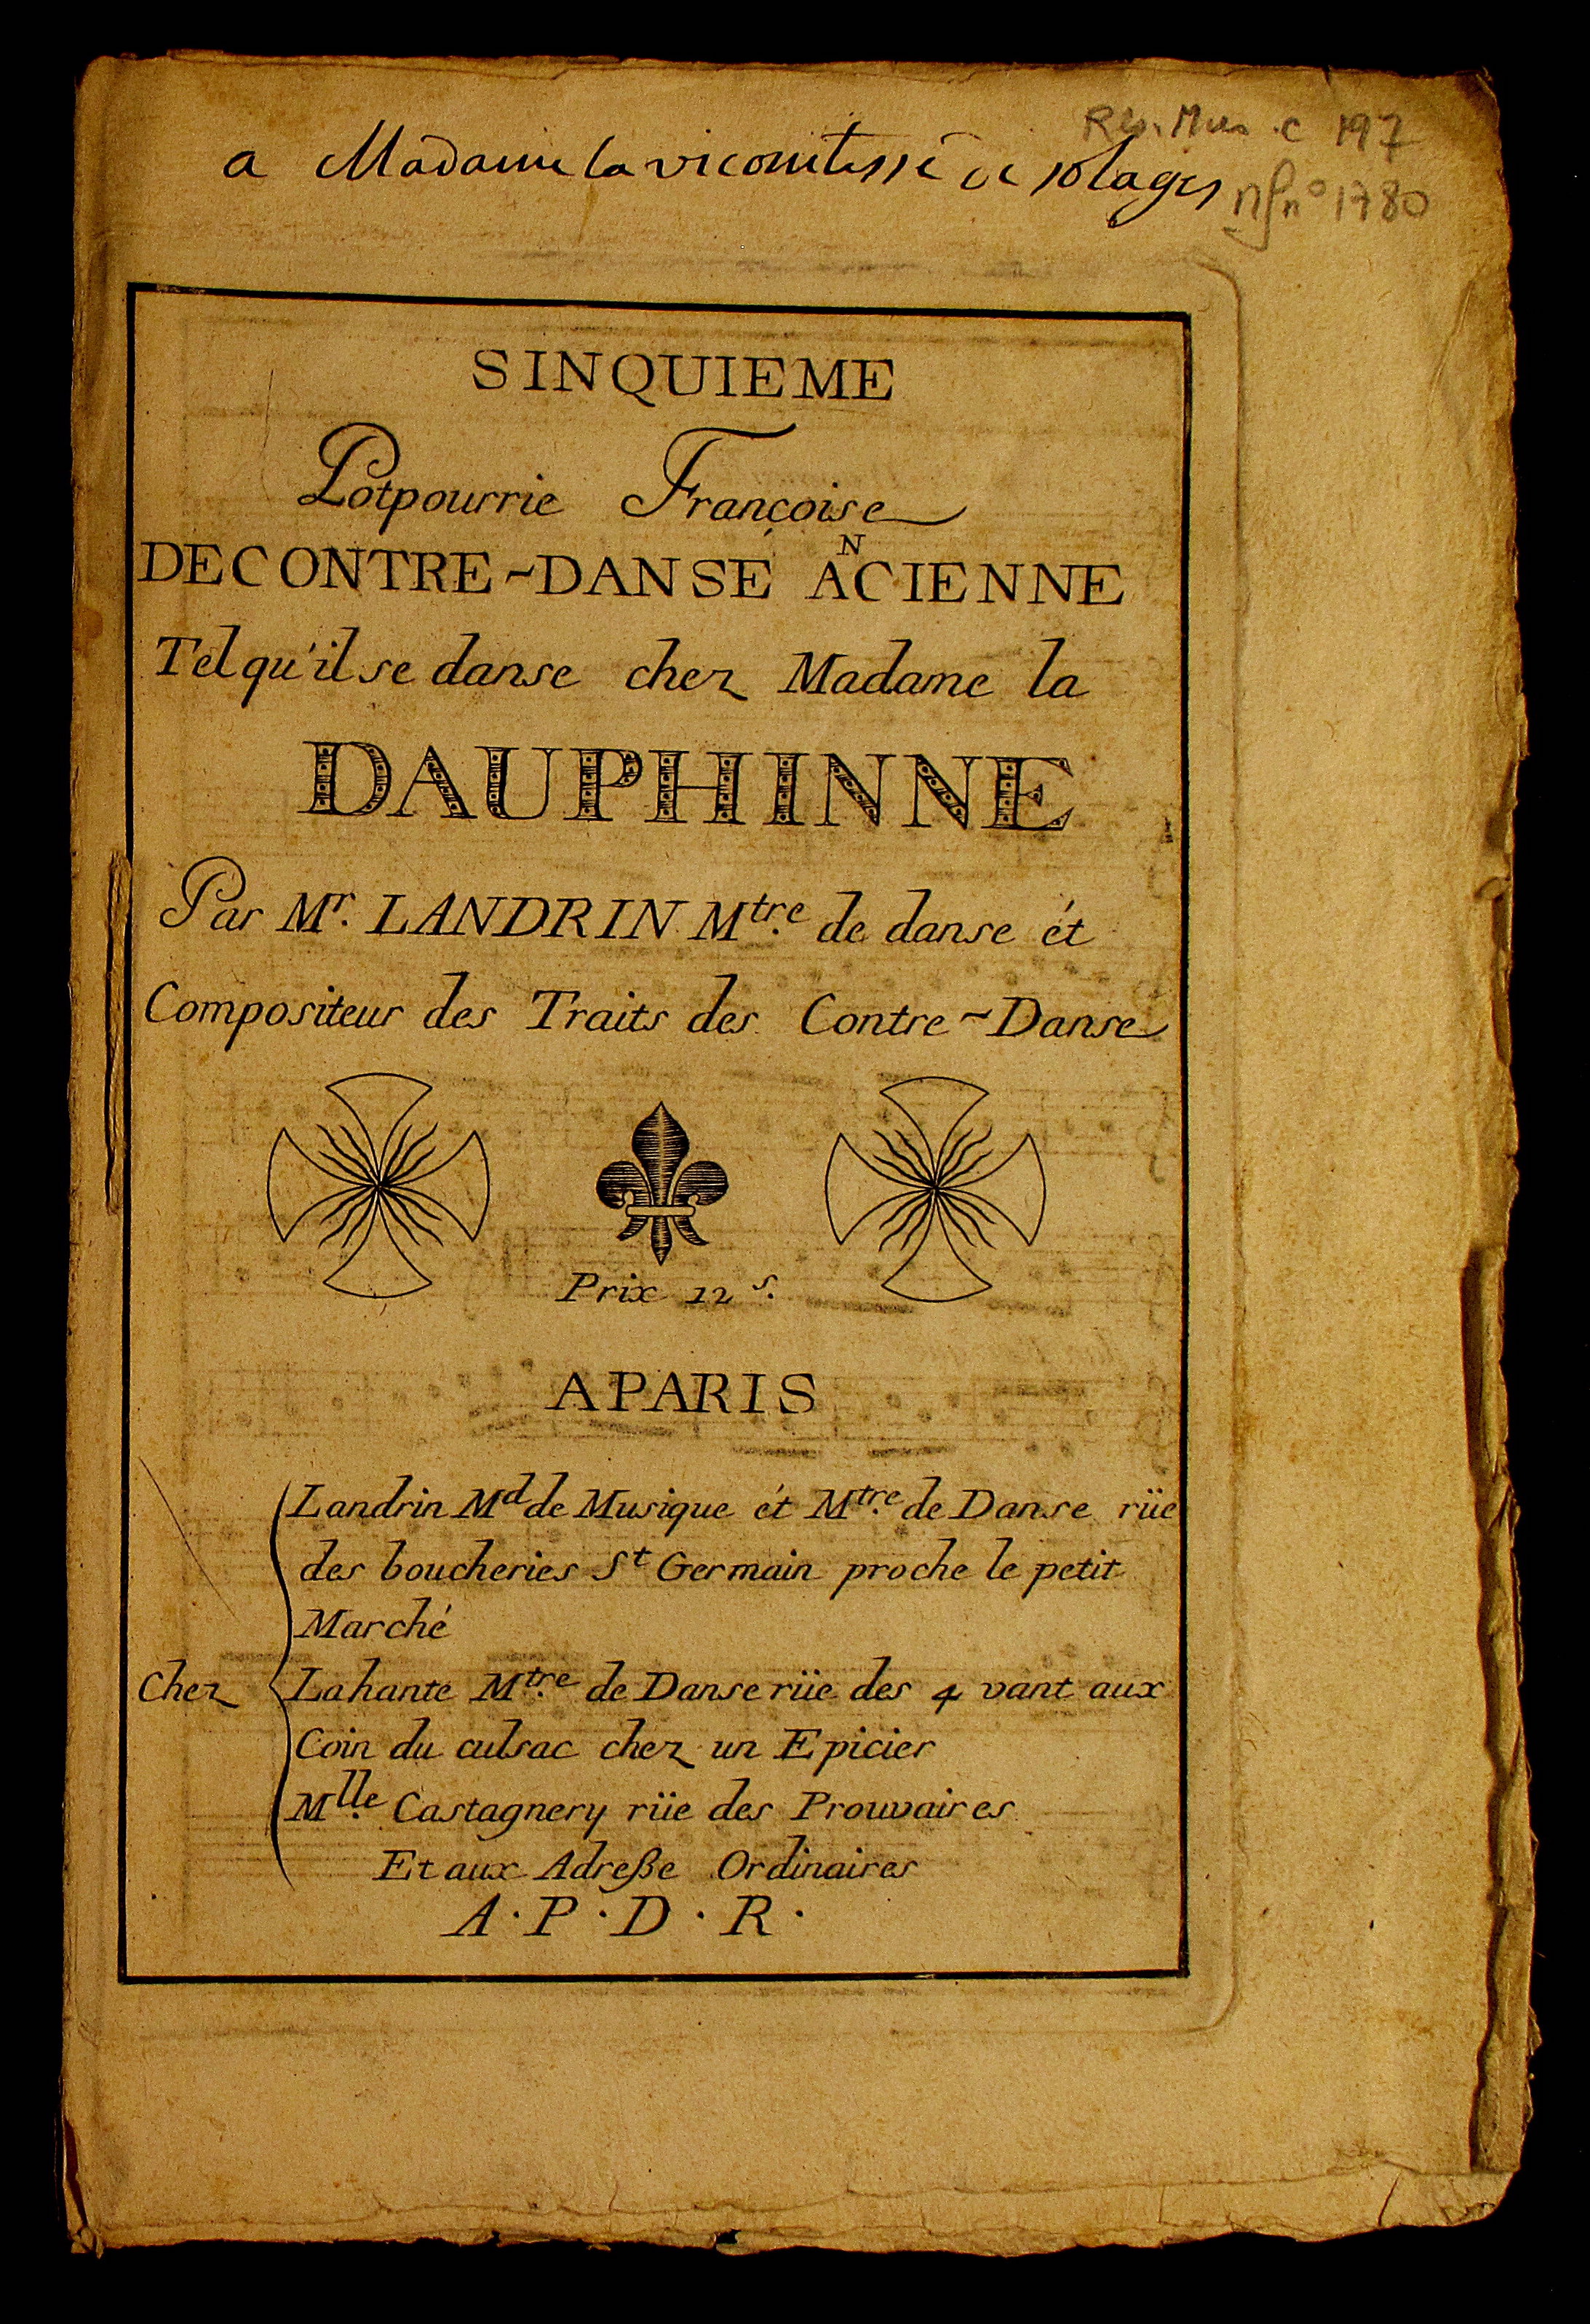 Rés. Mus. C 197
a Madame la vicomtesse de solages
n° 1780
SINQUIEME
Potpourrie Françoise
DECONTRE-DANSE ANCIENNE
Tel qu'il se danse chez Madame la
DAUPHINNE
Par Mr. LANDRIN Mtre. de danse ét
Compositeur des Traits des Contre-Danse
Prix 12 s.
A PARIS
Landrin Md de Musique ét Mtre. de Danse rüe
des boucheries St Germain proche le petit
Marché
Chez Lahante Mtre. de Danse rüe des 4 vant aux
Coin du culsac chez un Epicier
Mlle. Castagnery rüe des Prouvaires
Et aux Adreße Ordinaires
A. P. D. R.